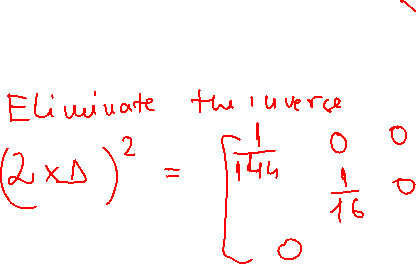 Eliminate the inverse
(2 × Δ)² = [ 1/144 0 0
1/16 0
0